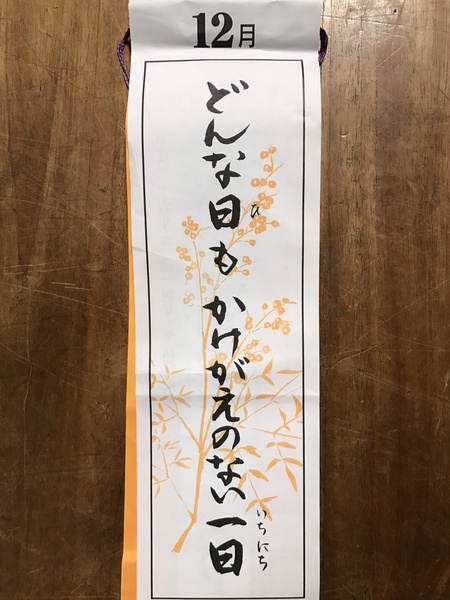 12月
どんな日も かけがえのない一日
ひ
いちにち